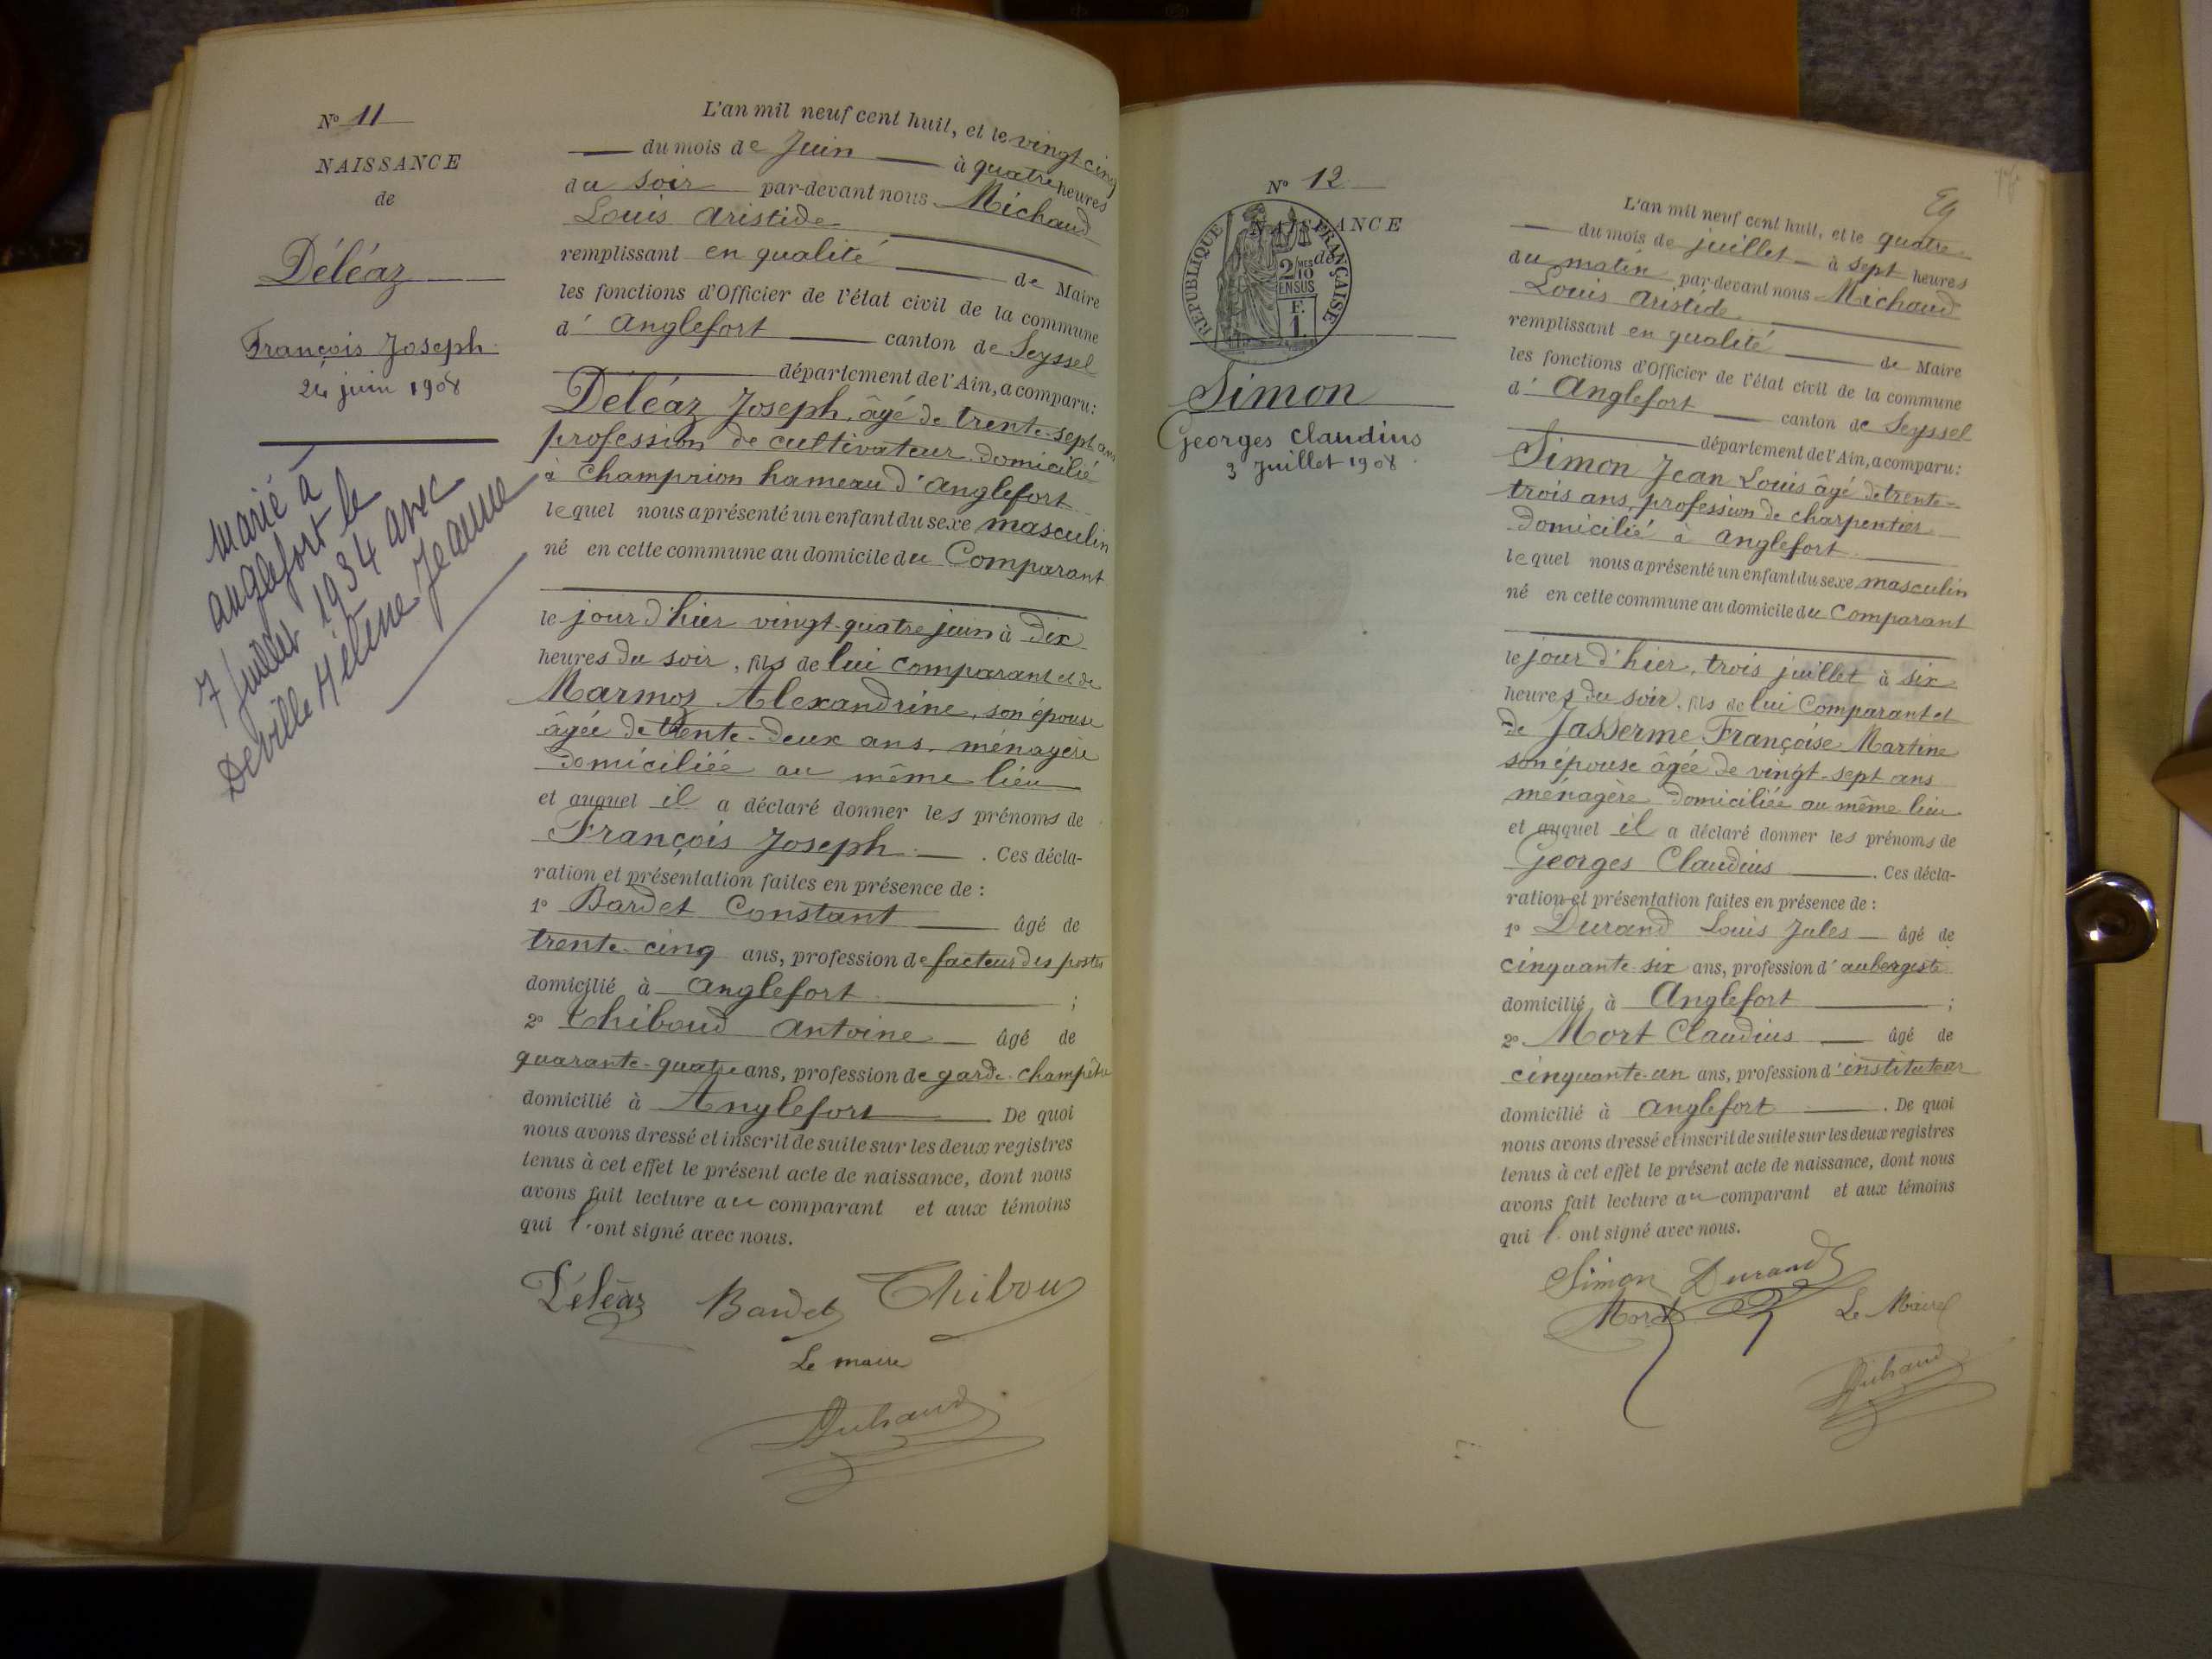 Nº 11
NAISSANCE
de
Déléaz
François Joseph
24 juin 1908
marié à
anglefort le
7 juillet 1934 avec
Deville Hélène Jeanne
L'an mil neuf cent huit, et le vingt cinq
du mois de Juin à quatre heures
du soir par-devant nous Michaud
Louis Aristide
remplissant en qualité de Maire
les fonctions d'Officier de l'état civil de la commune
d' Anglefort canton de Seyssel
département de l'Ain, a comparu:
Déléaz Joseph, âgé de trente-sept ans
profession de cultivateur domicilié
à Champrion hameau d'Anglefort
lequel nous a présenté un enfant du sexe masculin
né en cette commune au domicile du Comparant
le jour d'hier vingt-quatre juin à dix
heures du soir, fils de lui comparant et de
Marmoz Alexandrine, son épouse
âgée de trente-deux ans, ménagère
domiciliée au même lieu
et auquel il a déclaré donner les prénoms de
François Joseph. Ces décla-
ration et présentation faites en présence de :
1º Bardet Constant âgé de
trente-cinq ans, profession de facteur des postes
domicilié à Anglefort ;
2º Thiboud Antoine âgé de
quarante-quatre ans, profession de garde-champêtre
domicilié à Anglefort De quoi
nous avons dressé et inscrit de suite sur les deux registres
tenus à cet effet le présent acte de naissance, dont nous
avons fait lecture au comparant et aux témoins
qui l'ont signé avec nous.
Déléaz Bardet Thiboud
Le maire
Nº 12
NAISSANCE
de
RÉPUBLIQUE FRANÇAISE
2/10 MES
EN SUS
F.
1
Simon
Georges Claudius
3 Juillet 1908
L'an mil neuf cent huit, et le quatre
du mois de juillet à sept heures
du matin par-devant nous Michaud
Louis Aristide
remplissant en qualité de Maire
les fonctions d'Officier de l'état civil de la commune
d' Anglefort canton de Seyssel
département de l'Ain, a comparu:
Simon Jean Louis âgé de trente-
trois ans, profession de charpentier
domicilié à Anglefort
lequel nous a présenté un enfant du sexe masculin
né en cette commune au domicile du Comparant
le jour d'hier, trois juillet à six
heures du soir, fils de lui Comparant et
de Jasserme Françoise Martine
son épouse âgée de vingt-sept ans
ménagère domiciliée au même lieu
et auquel il a déclaré donner les prénoms de
Georges Claudius. Ces décla-
ration et présentation faites en présence de :
1º Durand Louis Jules âgé de
cinquante-six ans, profession d'aubergiste
domicilié à Anglefort ;
2º Mort Claudius âgé de
cinquante-un ans, profession d'instituteur
domicilié à Anglefort. De quoi
nous avons dressé et inscrit de suite sur les deux registres
tenus à cet effet le présent acte de naissance, dont nous
avons fait lecture au comparant et aux témoins
qui l'ont signé avec nous.
Simon Durand
Mort Le Maire